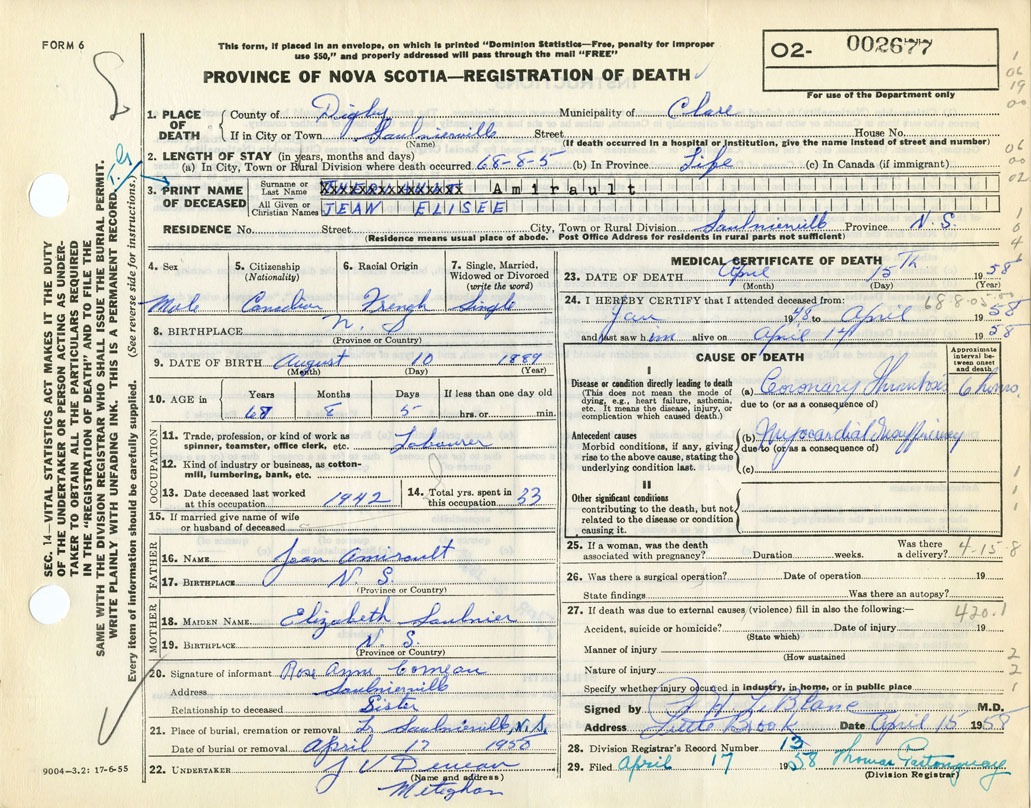 FORM 6
This form, if placed in an envelope, on which is printed "Dominion Statistics—Free, penalty for improper
use $50," and properly addressed will pass through the mail "FREE"
PROVINCE OF NOVA SCOTIA—REGISTRATION OF DEATH
O2- 002677
For use of the Department only
1. PLACE OF DEATH
County of Digby Municipality of Clare
If in City or Town Saulnierville Street House No.
(Name) (If death occurred in a hospital or institution, give the name instead of street and number)
2. LENGTH OF STAY (in years, months and days)
(a) In City, Town or Rural Division where death occurred 68-8-5 (b) In Province Life (c) In Canada (if immigrant)
3. PRINT NAME OF DECEASED
Surname or Last Name Amirault
All Given or Christian Names JEAN ELISEE
RESIDENCE No. Street City, Town or Rural Division Saulnierville Province N.S.
(Residence means usual place of abode. Post Office Address for residents in rural parts not sufficient)
4. Sex 5. Citizenship (Nationality) 6. Racial Origin 7. Single, Married, Widowed or Divorced (write the word)
Male Canadian French Single
8. BIRTHPLACE N. S
(Province or Country)
9. DATE OF BIRTH August 10 1889
(Month) (Day) (Year)
10. AGE in Years Months Days If less than one day old
68 8 5 hrs. or min.
OCCUPATION
11. Trade, profession, or kind of work as spinner, teamster, office clerk, etc. Labourer
12. Kind of industry or business, as cotton-mill, lumbering, bank, etc.
13. Date deceased last worked at this occupation 1942 14. Total yrs. spent in this occupation 33
15. If married give name of wife or husband of deceased
FATHER
16. NAME Jean Amirault
17. BIRTHPLACE N. S.
(Province or Country)
MOTHER
18. MAIDEN NAME Elizabeth Saulnier
19. BIRTHPLACE N. S.
(Province or Country)
20. Signature of informant Rose Anne Comeau
Address Saulnierville
Relationship to deceased Sister
21. Place of burial, cremation or removal L. Saulnierville, N.S.
Date of burial or removal April 17 1950
22. UNDERTAKER J V Deveau
(Name and address)
Meteghan
9004—3.2: 17-6-55
MEDICAL CERTIFICATE OF DEATH
23. DATE OF DEATH April 15Th 1958
(Month) (Day) (Year)
24. I HEREBY CERTIFY that I attended deceased from: 68 8-05
Jan 1948 to April 1958
and last saw him alive on April 14 1958
CAUSE OF DEATH
Approximate interval between onset and death
I
Disease or condition directly leading to death
(This does not mean the mode of dying, e.g., heart failure, asthenia, etc. It means the disease, injury, or complication which caused death.)
(a) Coronary Thrombosis 6 hours
due to (or as a consequence of)
Antecedent causes
Morbid conditions, if any, giving rise to the above cause, stating the underlying condition last.
(b) Myocardial Insufficiency
due to (or as a consequence of)
(c)
II
Other significant conditions
contributing to the death, but not related to the disease or condition causing it.
25. If a woman, was the death associated with pregnancy? Duration weeks. Was there a delivery? 4-15-8
26. Was there a surgical operation? Date of operation 19
State findings Was there an autopsy?
27. If death was due to external causes (violence) fill in also the following:— 420.1
Accident, suicide or homicide? Date of injury 19
(State which)
Manner of injury 2
(How sustained
Nature of injury 2
Specify whether injury occured in industry, in home, or in public place 1
Signed by LeBlanc M.D.
Address Little Brook Date April 15 1958
28. Division Registrar's Record Number 13
29. Filed April 17 1958
(Division Registrar)
SEC. 14—VITAL STATISTICS ACT MAKES IT THE DUTY
OF THE UNDERTAKER OR PERSON ACTING AS UNDER-
TAKER TO OBTAIN ALL THE PARTICULARS REQUIRED
IN THE "REGISTRATION OF DEATH" AND TO FILE THE
SAME WITH THE DIVISION REGISTRAR WHO SHALL ISSUE THE BURIAL PERMIT.
WRITE PLAINLY WITH UNFADING INK. THIS IS A PERMANENT RECORD.
Every item of information should be carefully supplied. (See reverse side for instructions.)
1
06
19
00
06
00
02